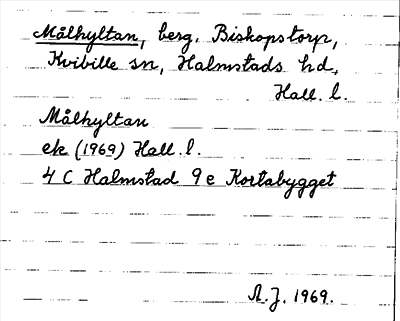 Målhyltan, berg. Biskopstorp,
Kvibille sn, Halmstads hd,
Hall. l.
Målhyltan
ek (1969) Hall. l.
4 C Halmstad 9 e Kortabygget
A.J. 1969.